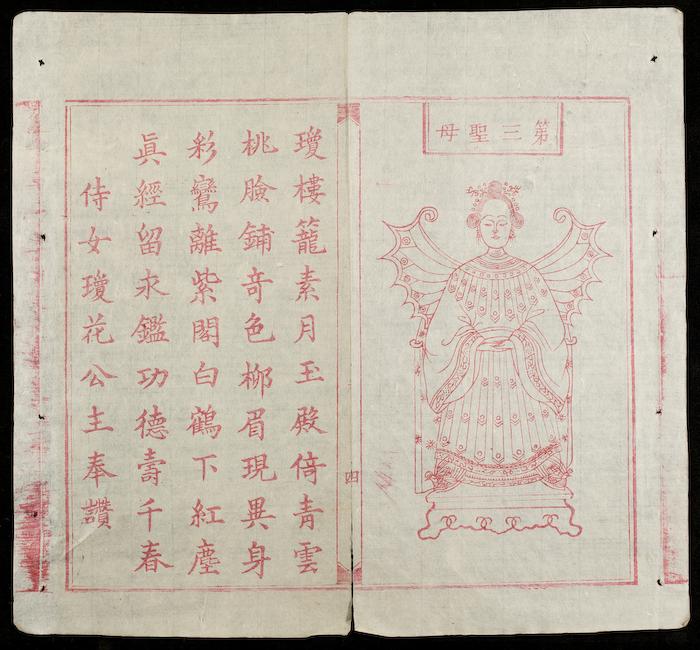 第三聖母
四
瓊樓籠素月玉殿倚青雲
桃臉鋪竒色柳眉現異身
彩鸞離紫閣白鶴下紅塵
眞經留永鑑功德壽千春
侍女瓊花公主奉讚